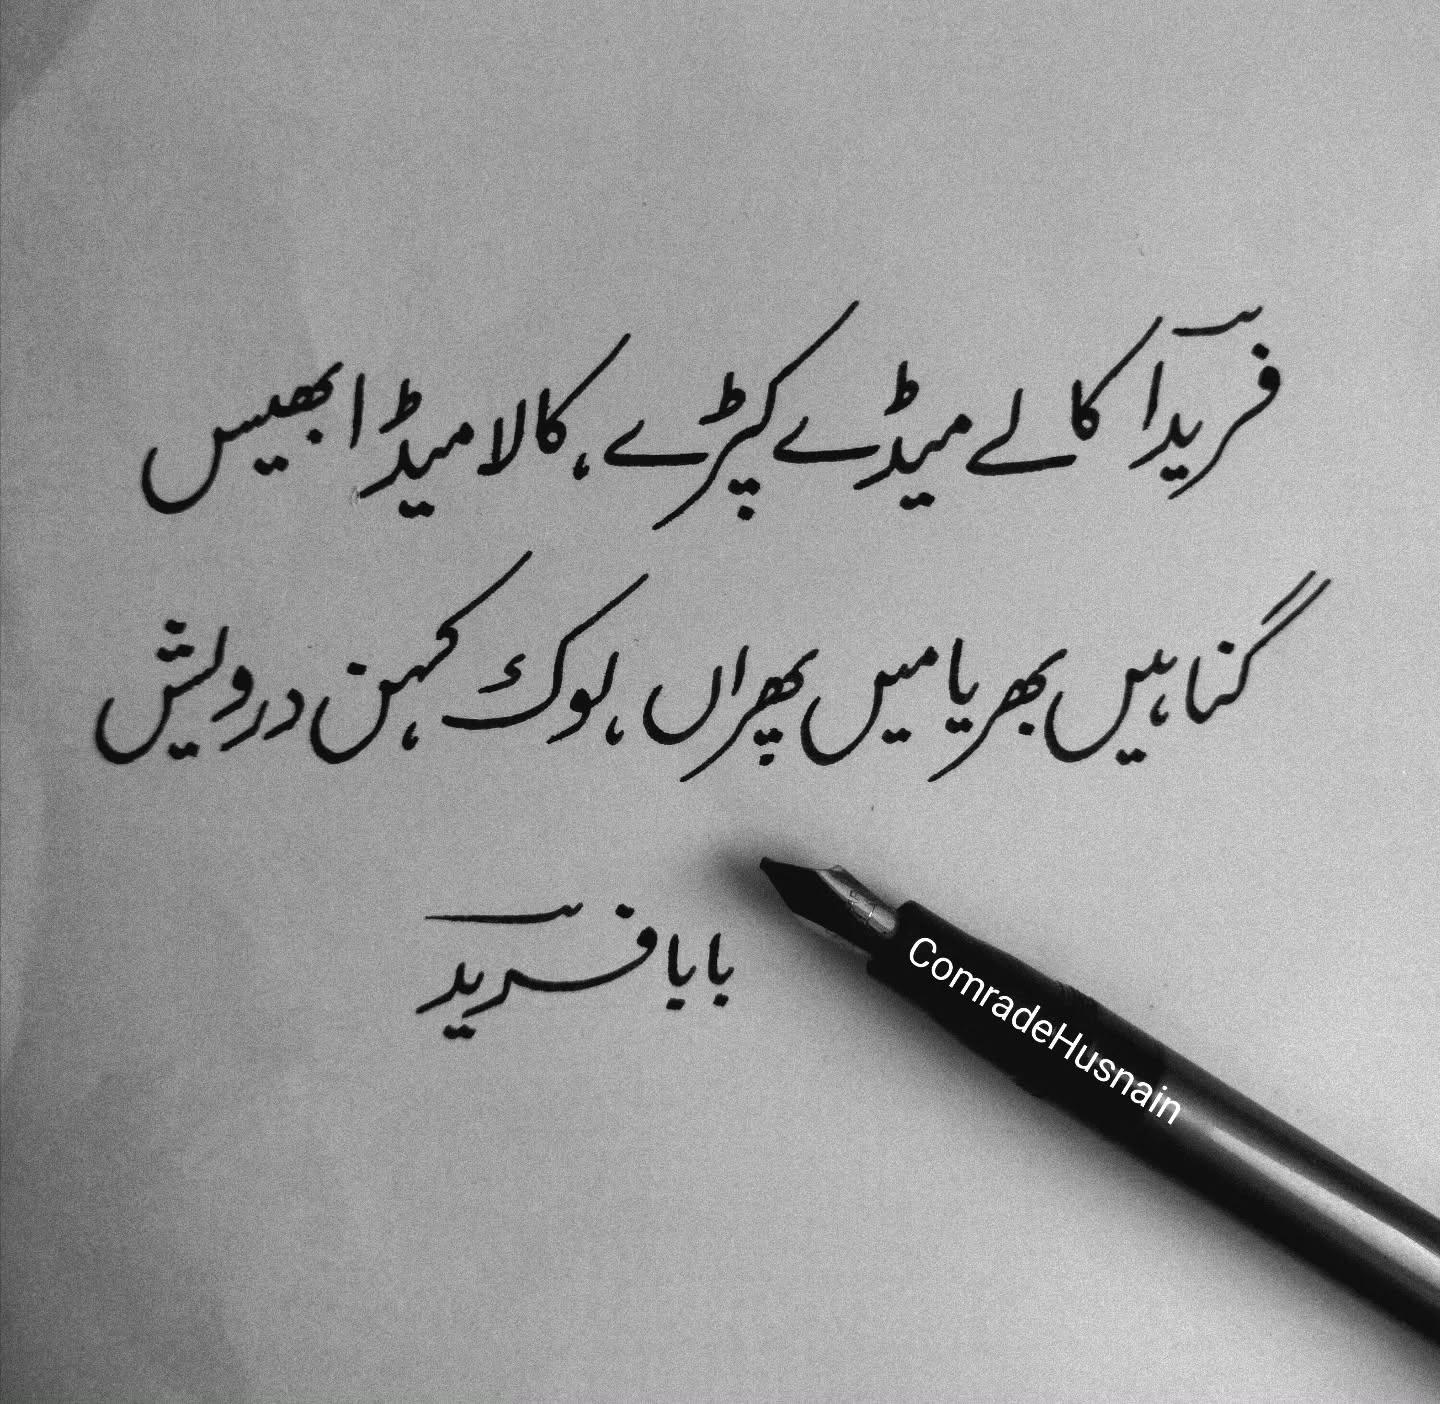 فریدؔا کالے میڈے کپڑے، کالا میڈا بھیس
گناہیں بھریا میں پھراں، لوک کہن درویش
بابا فریدؔ
ComradeHusnain